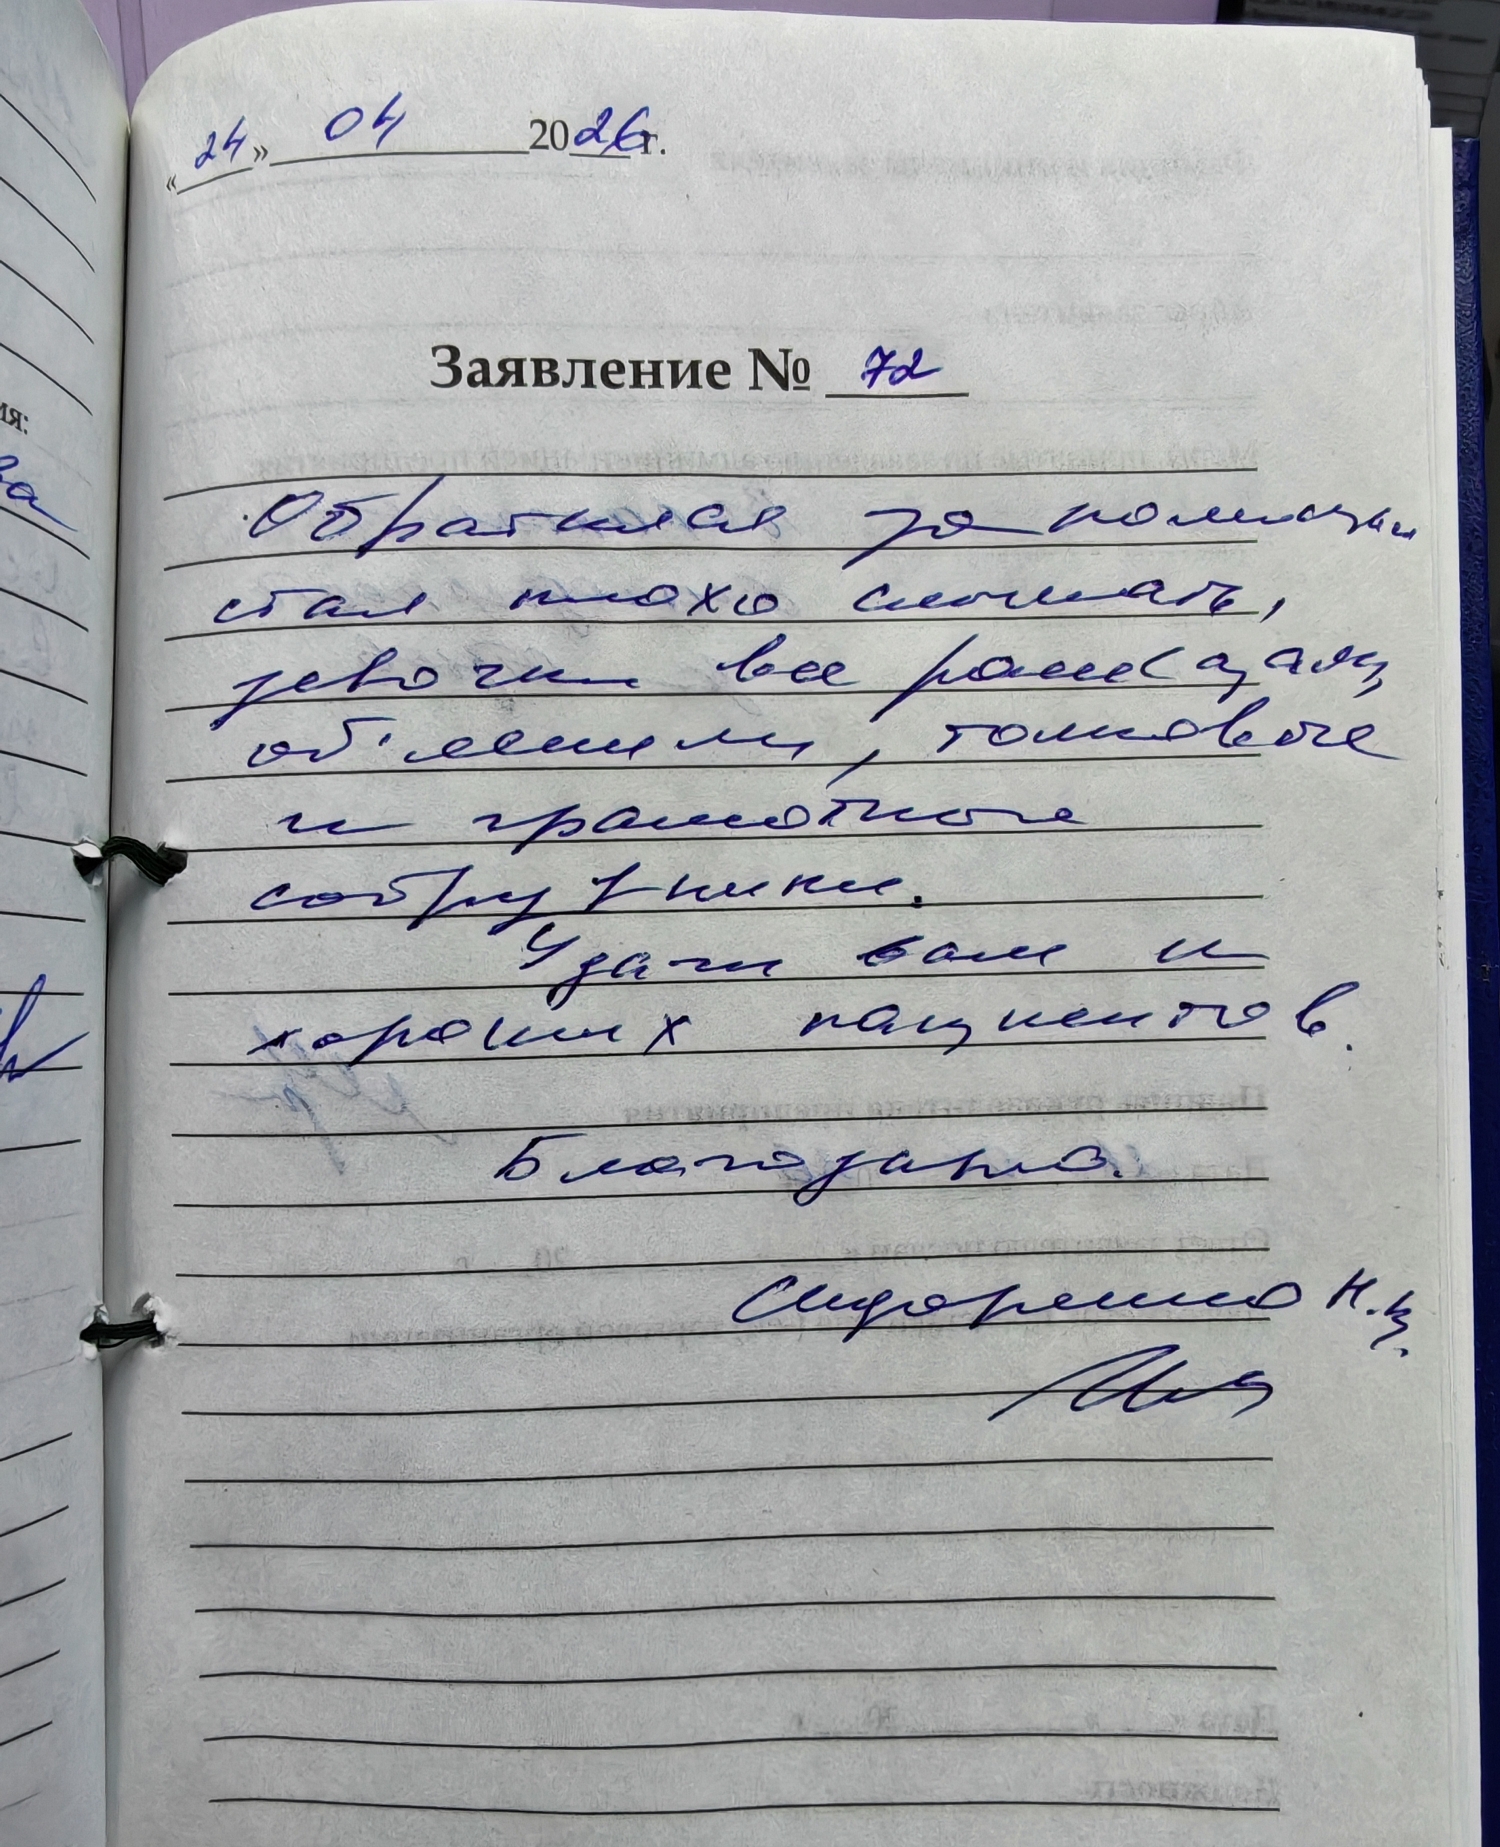 «24» 04 2026 г.
Заявление № 72
Обратился за помощью
стал плохо слышать,
девочки все рассказали,
объяснили, толковые
и грамотные
сотрудники.
Удачи вам и
хороших пациентов.
Благодарю.
Сидоренко Н.